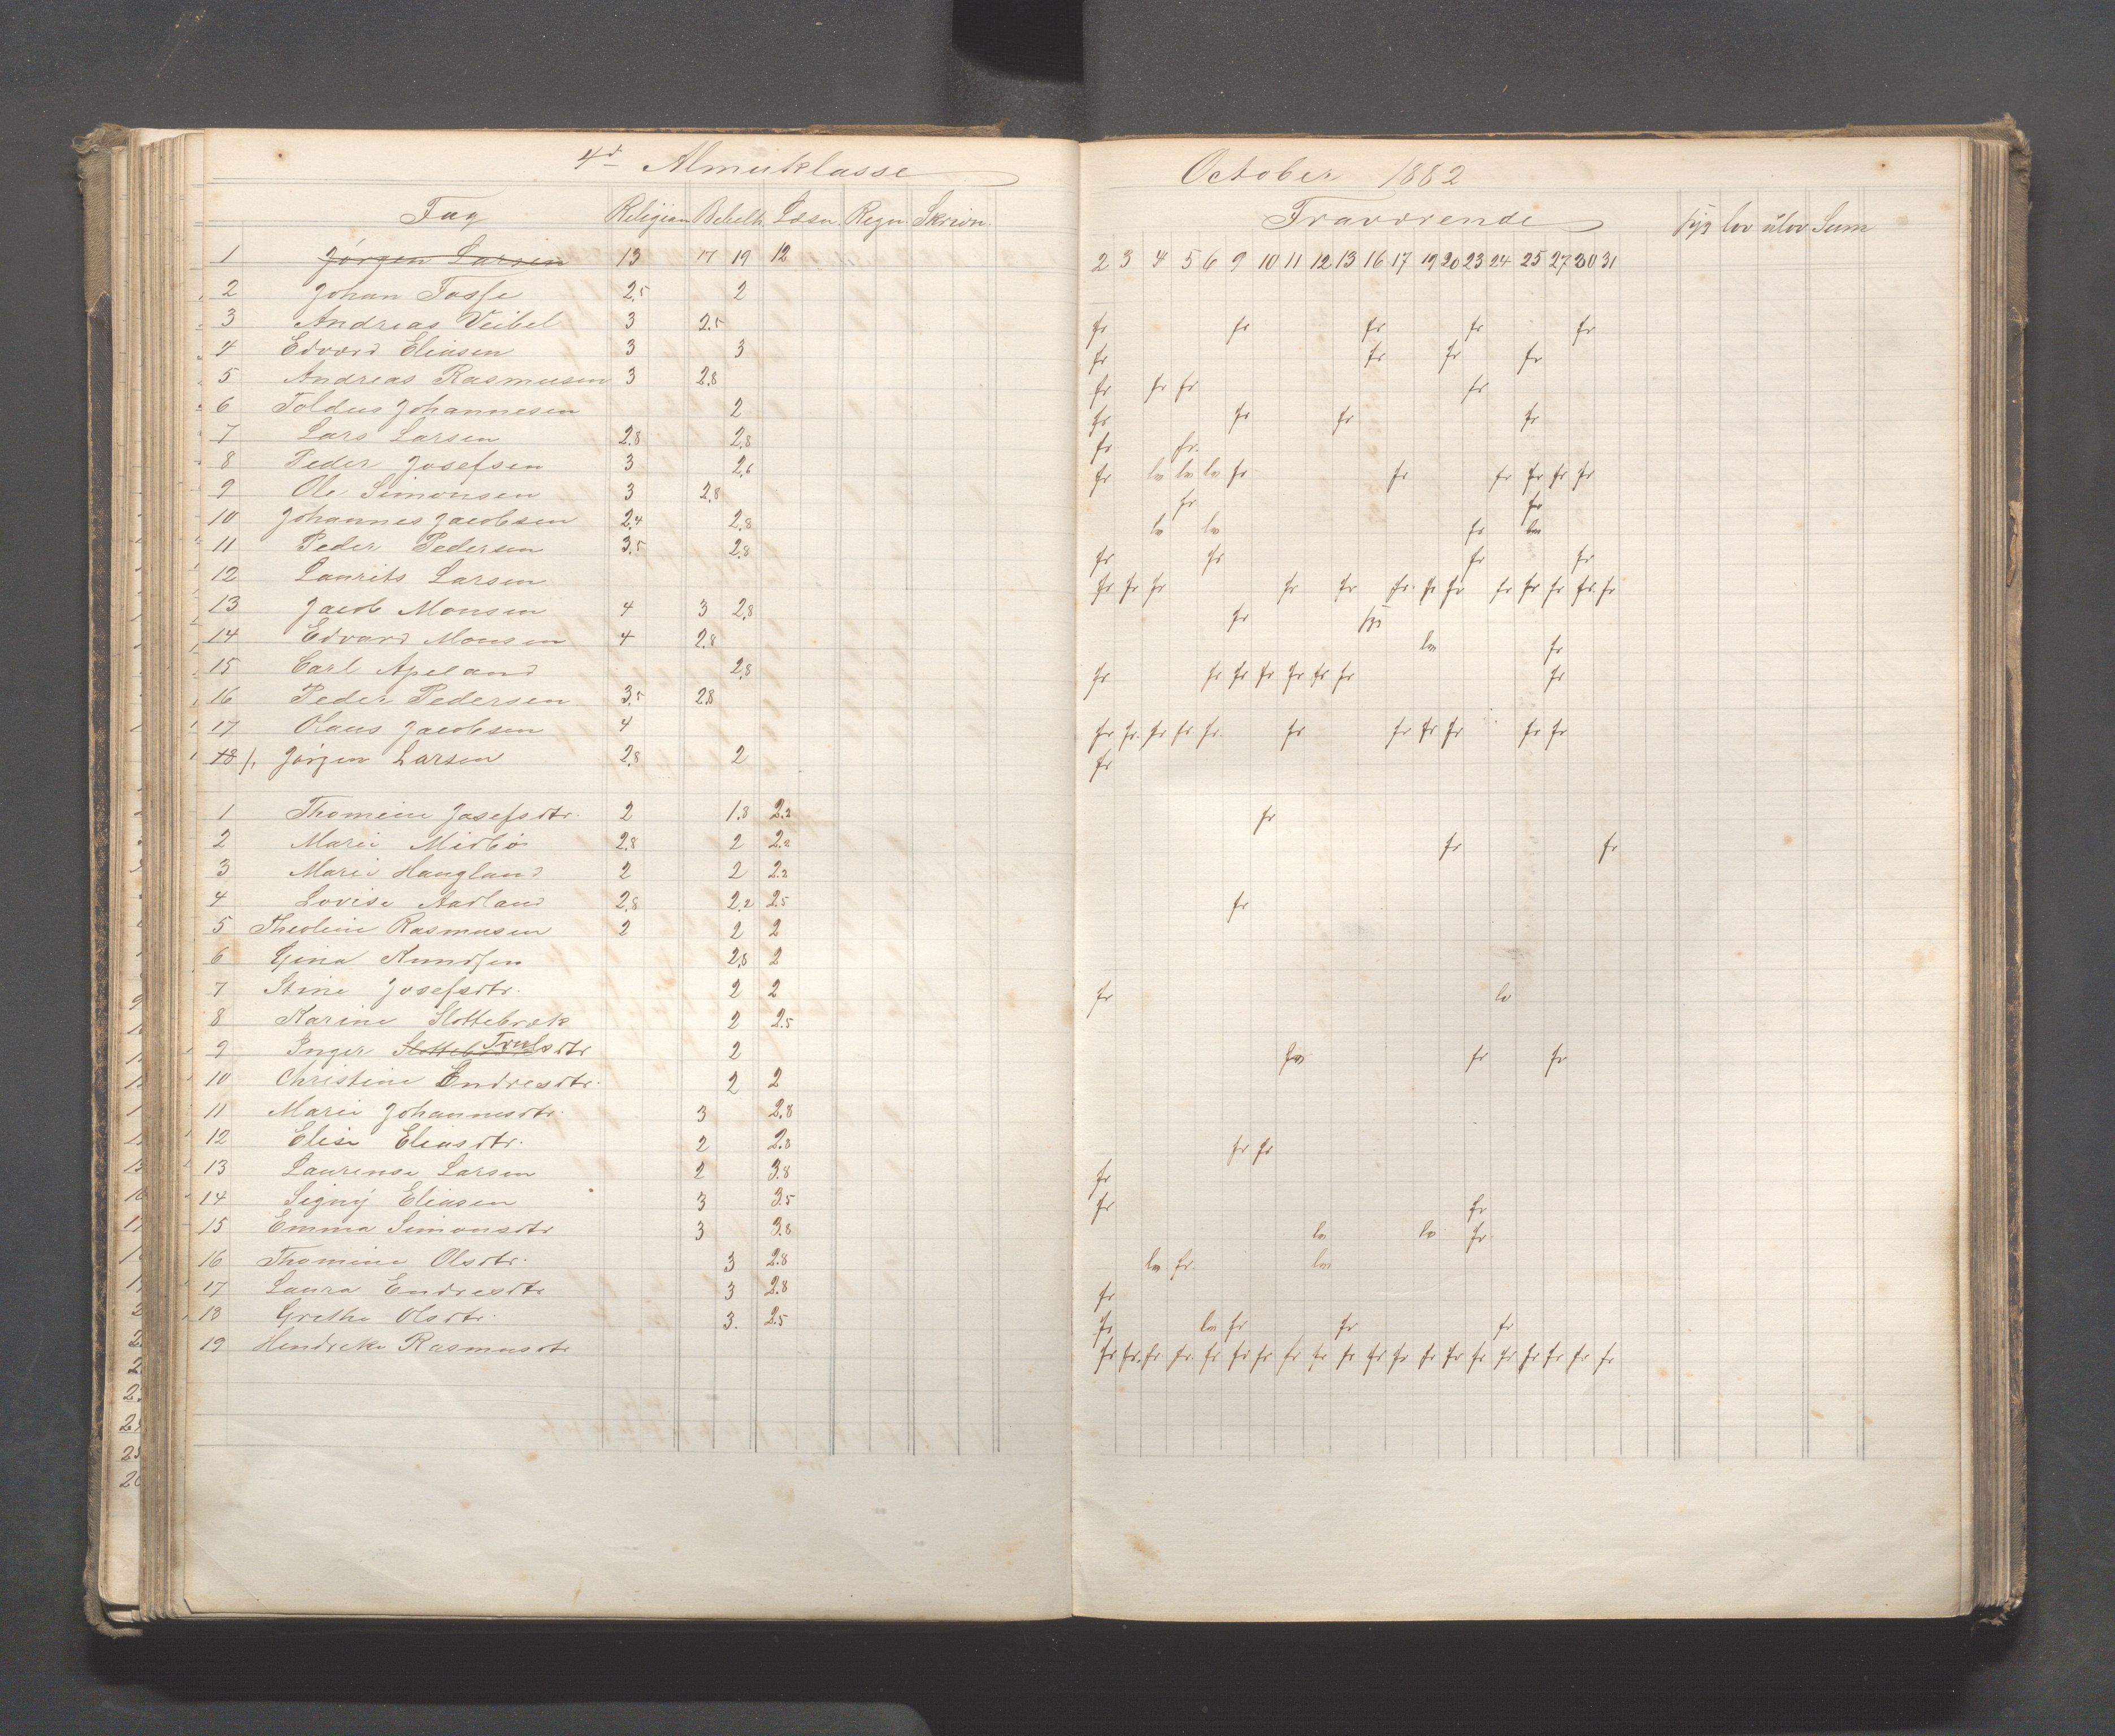 4d Almueklasse
Fag Religion Bibelh. Læsn. Regn. Skrivn.
1 Jørgen Larsen 13 17 19 12
2 Johan Tasse 2.5 2
3 Andreas Veibel 3 2.5
4 Edvard Eliasen 3 3
5 Andreas Rasmusen 3 2.8
6 Toldus Johannesen 2
7 Lars Larsen 2.8 2.8
8 Peder Josefsen 3 2.6
9 Ole Simonsen 3 2.8
10 Johannes Jacobsen 2.4 2.8
11 Peder Pedersen 3.5 2.8
12 Laurits Larsen
13 Jacob Monsen 4 3 2.8
14 Edvard Monsen 4 2.8
15 Carl Apeland 2.8
16 Peder Pedersen 3.5 2.8
17 Olaus Jacobsen 4
18 1. Jørgen Larsen 2.8 2
1 Thomine Josefsdtr. 2 1.8 2.2
2 Marie Midbø 2.8 2 2.2
3 Marie Haugland 2 2 2.2
4 Lovise Aadland 2.8 2.2 2.5
5 Theoline Rasmusen 2 2 2
6 Gina Knudsen 2.8 2
7 Stine Josefsdtr. 2 2
8 Karine Slottebræk 2 2.5
9 Inger Trulsdtr 2
10 Christine Endresdtr. 2 2
11 Marie Johannesdtr. 3 2.8
12 Elise Eliasdtr. 2 2.8
13 Laurense Larsen 2 3.8
14 Signy Eliasen 3 3.5
15 Emma Simonsdtr 3 3.8
16 Thomine Olsdtr. 3 2.8
17 Laura Endresdtr 3 2.8
18 Grethe Olsdtr. 3. 2.5
19 Hendreke Rasmusdtr
October 1882
Fraværende syg lov ulov Sum
2 3 4 5 6 9 10 11 12 13 16 17 19 20 23 24 25 27 30 31
fr fr fr fr fr
fr fr fr fr
fr fr fr fr
fr fr fr fr
fr fr.
fr lo lo lo fr fr fr fr fr fr
fr fr
lo lo fr lo
fr fr fr fr
fr fr fr fr fr fr. fr fr fr fr fr fr. fr
fr syg
lo fr
fr fr fr fr fr fr fr fr
fr fr. fr fr fr. fr fr fr fr fr fr
fr
fr
fr fr
fr
fr lo
fr fr
fr fr
fr
fr fr
lo lo fr
lo fr. lo
fr
fr lo fr fr fr
fr fr. fr fr. fr fr fr fr fr fr fr fr fr fr fr fr fr fr fr fr